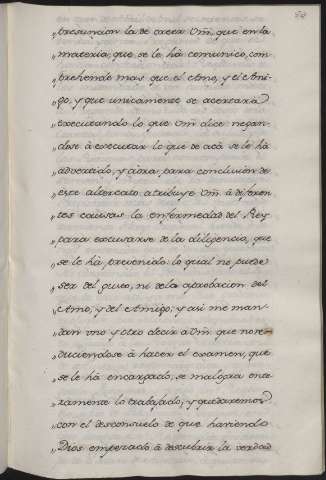 „presuncion la de creer Vm. que en la
„materia, que se le hà comunico, com
„prehendo mas que el Amo, y el Ami-
„go, y que unicamente se acertarà
„executando lo que Vm. dice negan-
„dose à executar lo que de acà se le hà
„advertido, y aora, para conclusion de
„este altercato atribuye Vm. à diferen-
„tes causas la enfermedad del Rey
„para excusarse de la diligencia, que
„se le hà prevenido: lo qual no puede
„ser del gusto, ni de la aprobacion del
„Amo, y del Amigo; y asi me man-
„dan uno y otro decir à Vm. que no re-
„duciendose à hacer el examen, que
„se le hà encargado, se malogra ente-
„ramente lo trabajado, y quedaremos
„con el desconsuelo de que haviendo
„Dios empezado à descubrir la verdad